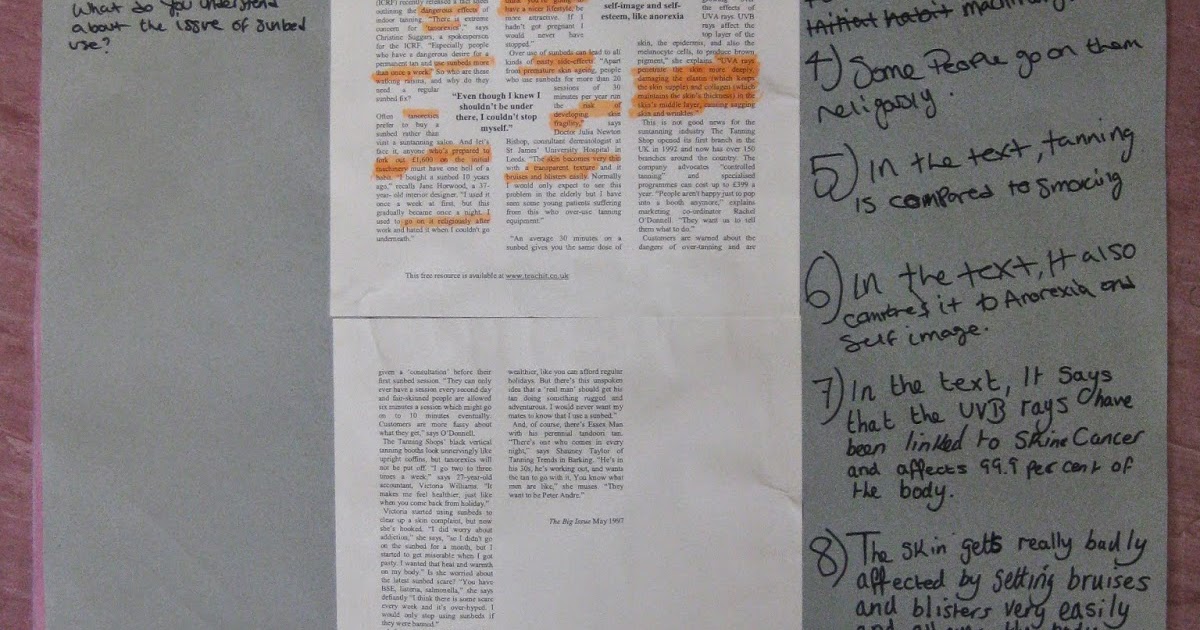 What do you understand
about the issue of sunbed
use?
(ICRF) recently released a fact sheet
outlining the dangerous effects of
indoor tanning. "There is extreme
concern for tanorexics", says
Christine Suggars, a spokesperson
for the ICRF. "Especially people
who have a dangerous desire for a
permanent tan and use sunbeds more
than once a week." So who are these
walking raisins, and why do they
need a regular
sunbed fix?
Often tanorexics
prefer to buy a
sunbed rather than
visit a suntanning salon. And let's
face it, anyone who's prepared to
fork out £1,600 on the initial
machinery must have one hell of a
habit. "I bought a sunbed 10 years
ago," recalls Jane Horwood, a 37-
year-old interior designer. "I used it
once a week at first, but this
gradually became once a night. I
used to go on it religiously after
work and hated it when I couldn't go
underneath."
"Even though I knew I
shouldn't be under
there, I couldn't stop
myself."
have a nicer lifestyle/ be
more attractive. If I
hadn't got pregnant I
would never have
stopped."
Over use of sunbeds can lead to all
kinds of nasty side-effects. "Apart
from premature skin ageing, people
who use sunbeds for more than 20
sessions of 30
minutes per year run
the risk of
developing skin
fragility," says
Doctor Julia Newton
Bishop, consultant dermatologist at
St James' University Hospital in
Leeds. "The skin becomes very thin
with a transparent texture and it
bruises and blisters easily. Normally
I would only expect to see this
problem in the elderly but I have
seen some young patients suffering
from this who over-use tanning
equipment."
"An average 30 minutes on a
sunbed gives you the same dose of
self-image and self-
esteem, like anorexia
the effects of
UVA rays. UVB
rays affect the
top layer of the
skin, the epidermis, and also the
melanocyte cells, to produce brown
pigment," she explains. "UVA rays
penetrate the skin more deeply,
damaging the elastin (which keeps
the skin supple) and collagen (which
maintains the skin's thickness) in the
skin's middle layer, causing sagging
skin and wrinkles."
This is not good news for the
suntanning industry. The Tanning
Shop opened its first branch in the
UK in 1992 and now has over 150
branches around the country. The
company advocates "controlled
tanning" and specialised
programmes can cost up to £399 a
year. "People aren't happy just to pop
into a booth anymore," explains
marketing co-ordinator Rachel
O'Donnell. "They want us to tell
them what to do."
Customers are warned about the
dangers of over-tanning and are
This free resource is available at www.teachit.co.uk
given a 'consultation' before their
first sunbed session. "They can only
ever have a session every second day
and fair-skinned people are allowed
six minutes a session which might go
on to 10 minutes eventually.
Customers are more fussy about
what they get," says O'Donnell.
The Tanning Shops' black vertical
tanning booths look unnervingly like
upright coffins, but tanorexics will
not be put off. "I go two to three
times a week," says 27-year-old
accountant, Victoria Williams. "It
makes me feel healthier, just like
when you come back from holiday."
Victoria started using sunbeds to
clear up a skin complaint, but now
she's hooked. "I did worry about
addiction," she says, "so I didn't go
on the sunbed for a month, but I
started to get miserable when I got
party. I wanted that heat and warmth
on my body." Is she worried about
the latest sunbed scare? "You have
BSE, listeria, salmonella," she says
defiantly "I think there is some scare
every week and it's over-hyped. I
would only stop using sunbeds if
they were banned."
wealthier, like you can afford regular
holidays. But there's this unspoken
idea that a 'real man' should get his
tan doing something rugged and
adventurous. I would never want my
mates to know that I use a sunbed."
And, of course, there's Essex Man
with his perennial tandoori tan.
"There's one who comes in every
night," says Shauney Taylor of
Tanning Trends in Barking. "He's in
his 30s, he's working out, and wants
the tan to go with it. You know what
men are like," she muses. "They
want to be Peter Andre."
The Big Issue May 1997
4) Some People go on them
religously.
5) In the text, tanning
is compared to smoking
6) In the text, It also
comtres it to Anorexia and
Self image.
7) In the text, It Says
that the UVB rays have
been linked to Skine Cancer
and affects 99.9 per cent of
the body.
8) The skin gets really badly
affected by getting bruises
and blisters very easily